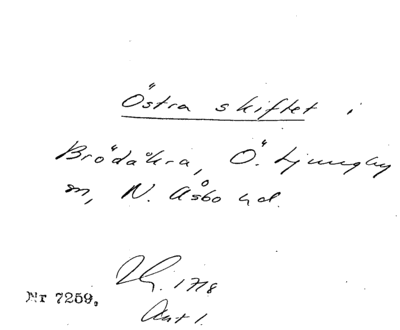 Östra skiftet i
Brödåkra, Ö. Ljungby
sn, N. Åsbo hd.
1718
Akt 1.
Nr 7259.